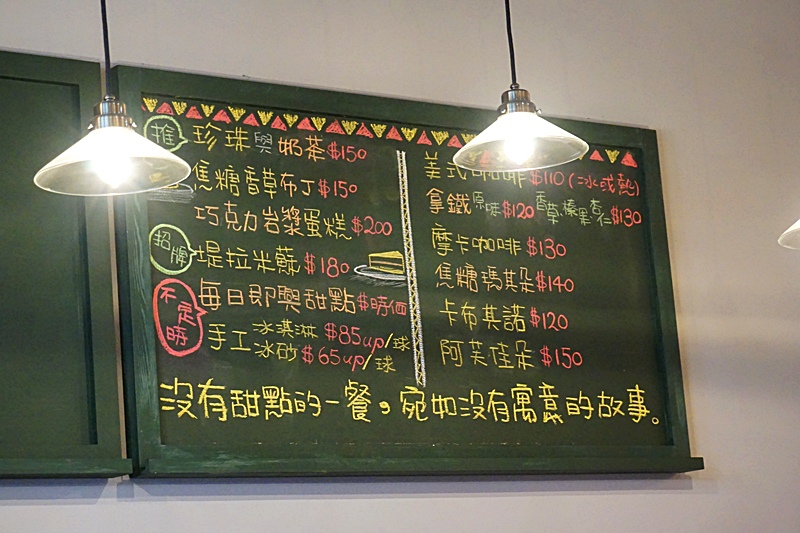 推 珍珠與奶茶$150
焦糖香草布丁$150
巧克力岩漿蛋糕$200
招牌 堤拉米蘇$180
不定時 每日即興甜點$時価
手工冰淇淋$85up/球
冰砂$65up/球
美式咖啡$110(冰或熱)
拿鐵原味$120香草.榛果.杏仁$130
摩卡咖啡$130
焦糖瑪其朵$140
卡布其諾$120
阿芙佳朵$150
沒有甜點的一餐。宛如沒有寓意的故事。